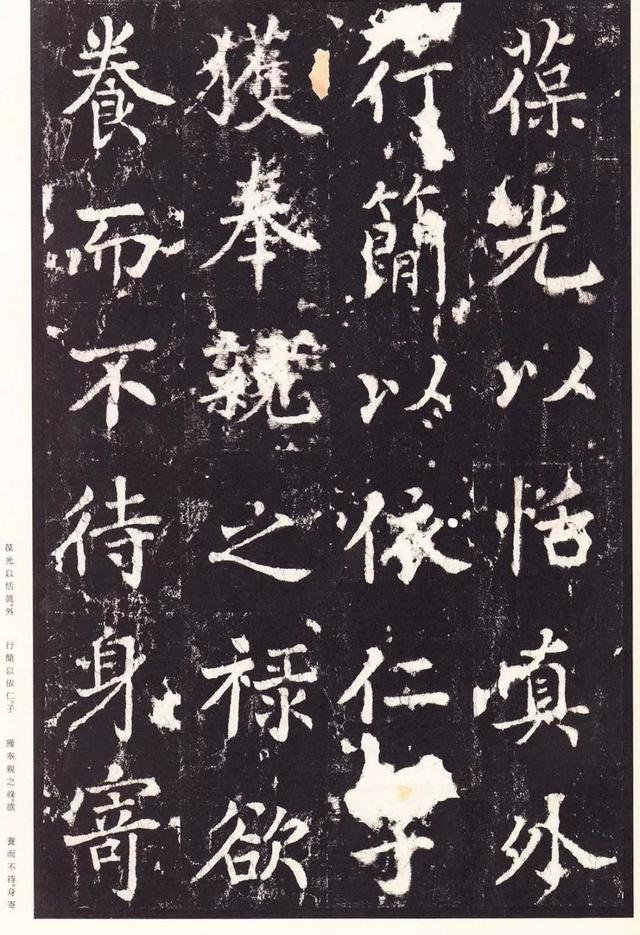 葆光以恬慎外
行簡以依仁子
獲奉親之祿欲
養而不待身寄
葆光以恬眞。外 行簡以依仁。子 獲奉親之祿。欲 養而不待。身寄